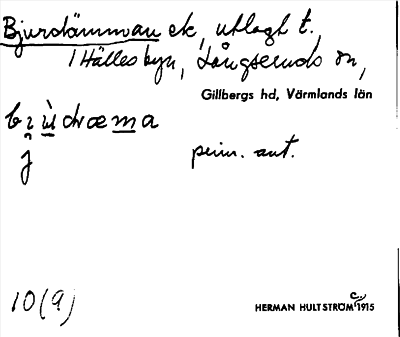 Bjurdämman ek, utlagt t.
1 Hällesbyn, Långseruds sn,
Gillbergs hd, Värmlands län
j
pers. ant.
10(9)
HERMAN HULTSTRÖM 1915